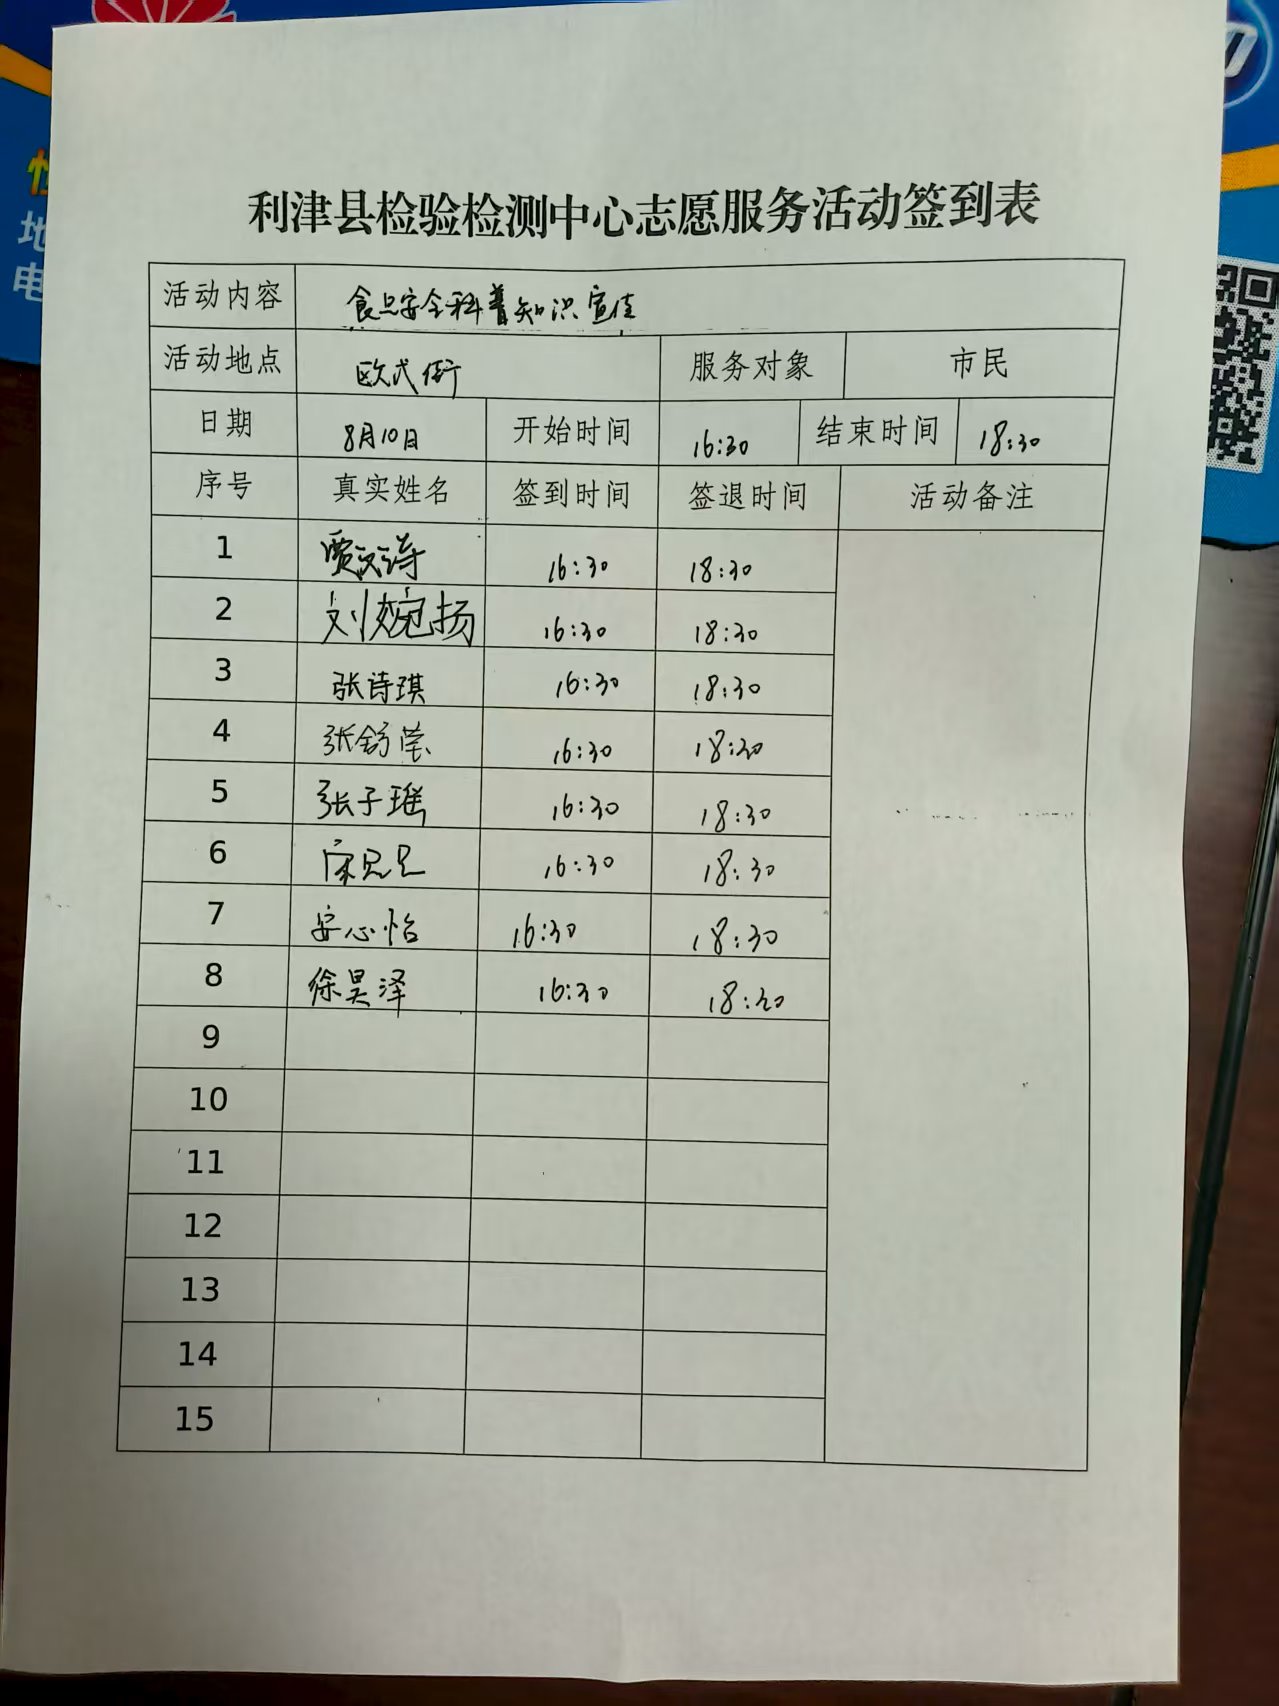 地
电
利津县检验检测中心志愿服务活动签到表
活动内容 食品安全科普知识宣传
活动地点 欧式街 服务对象 市民
日期 8月10日 开始时间 16:30 结束时间 18:30
序号 真实姓名 签到时间 签退时间 活动备注
1 贾文涛 16:30 18:30
2 刘婉扬 16:30 18:30
3 张诗琪 16:30 18:30
4 张舒莹 16:30 18:30
5 张子瑶 16:30 18:30
6 16:30 18:30
7 安心怡 16:30 18:30
8 徐昊泽 16:30 18:30
9
10
11
12
13
14
15